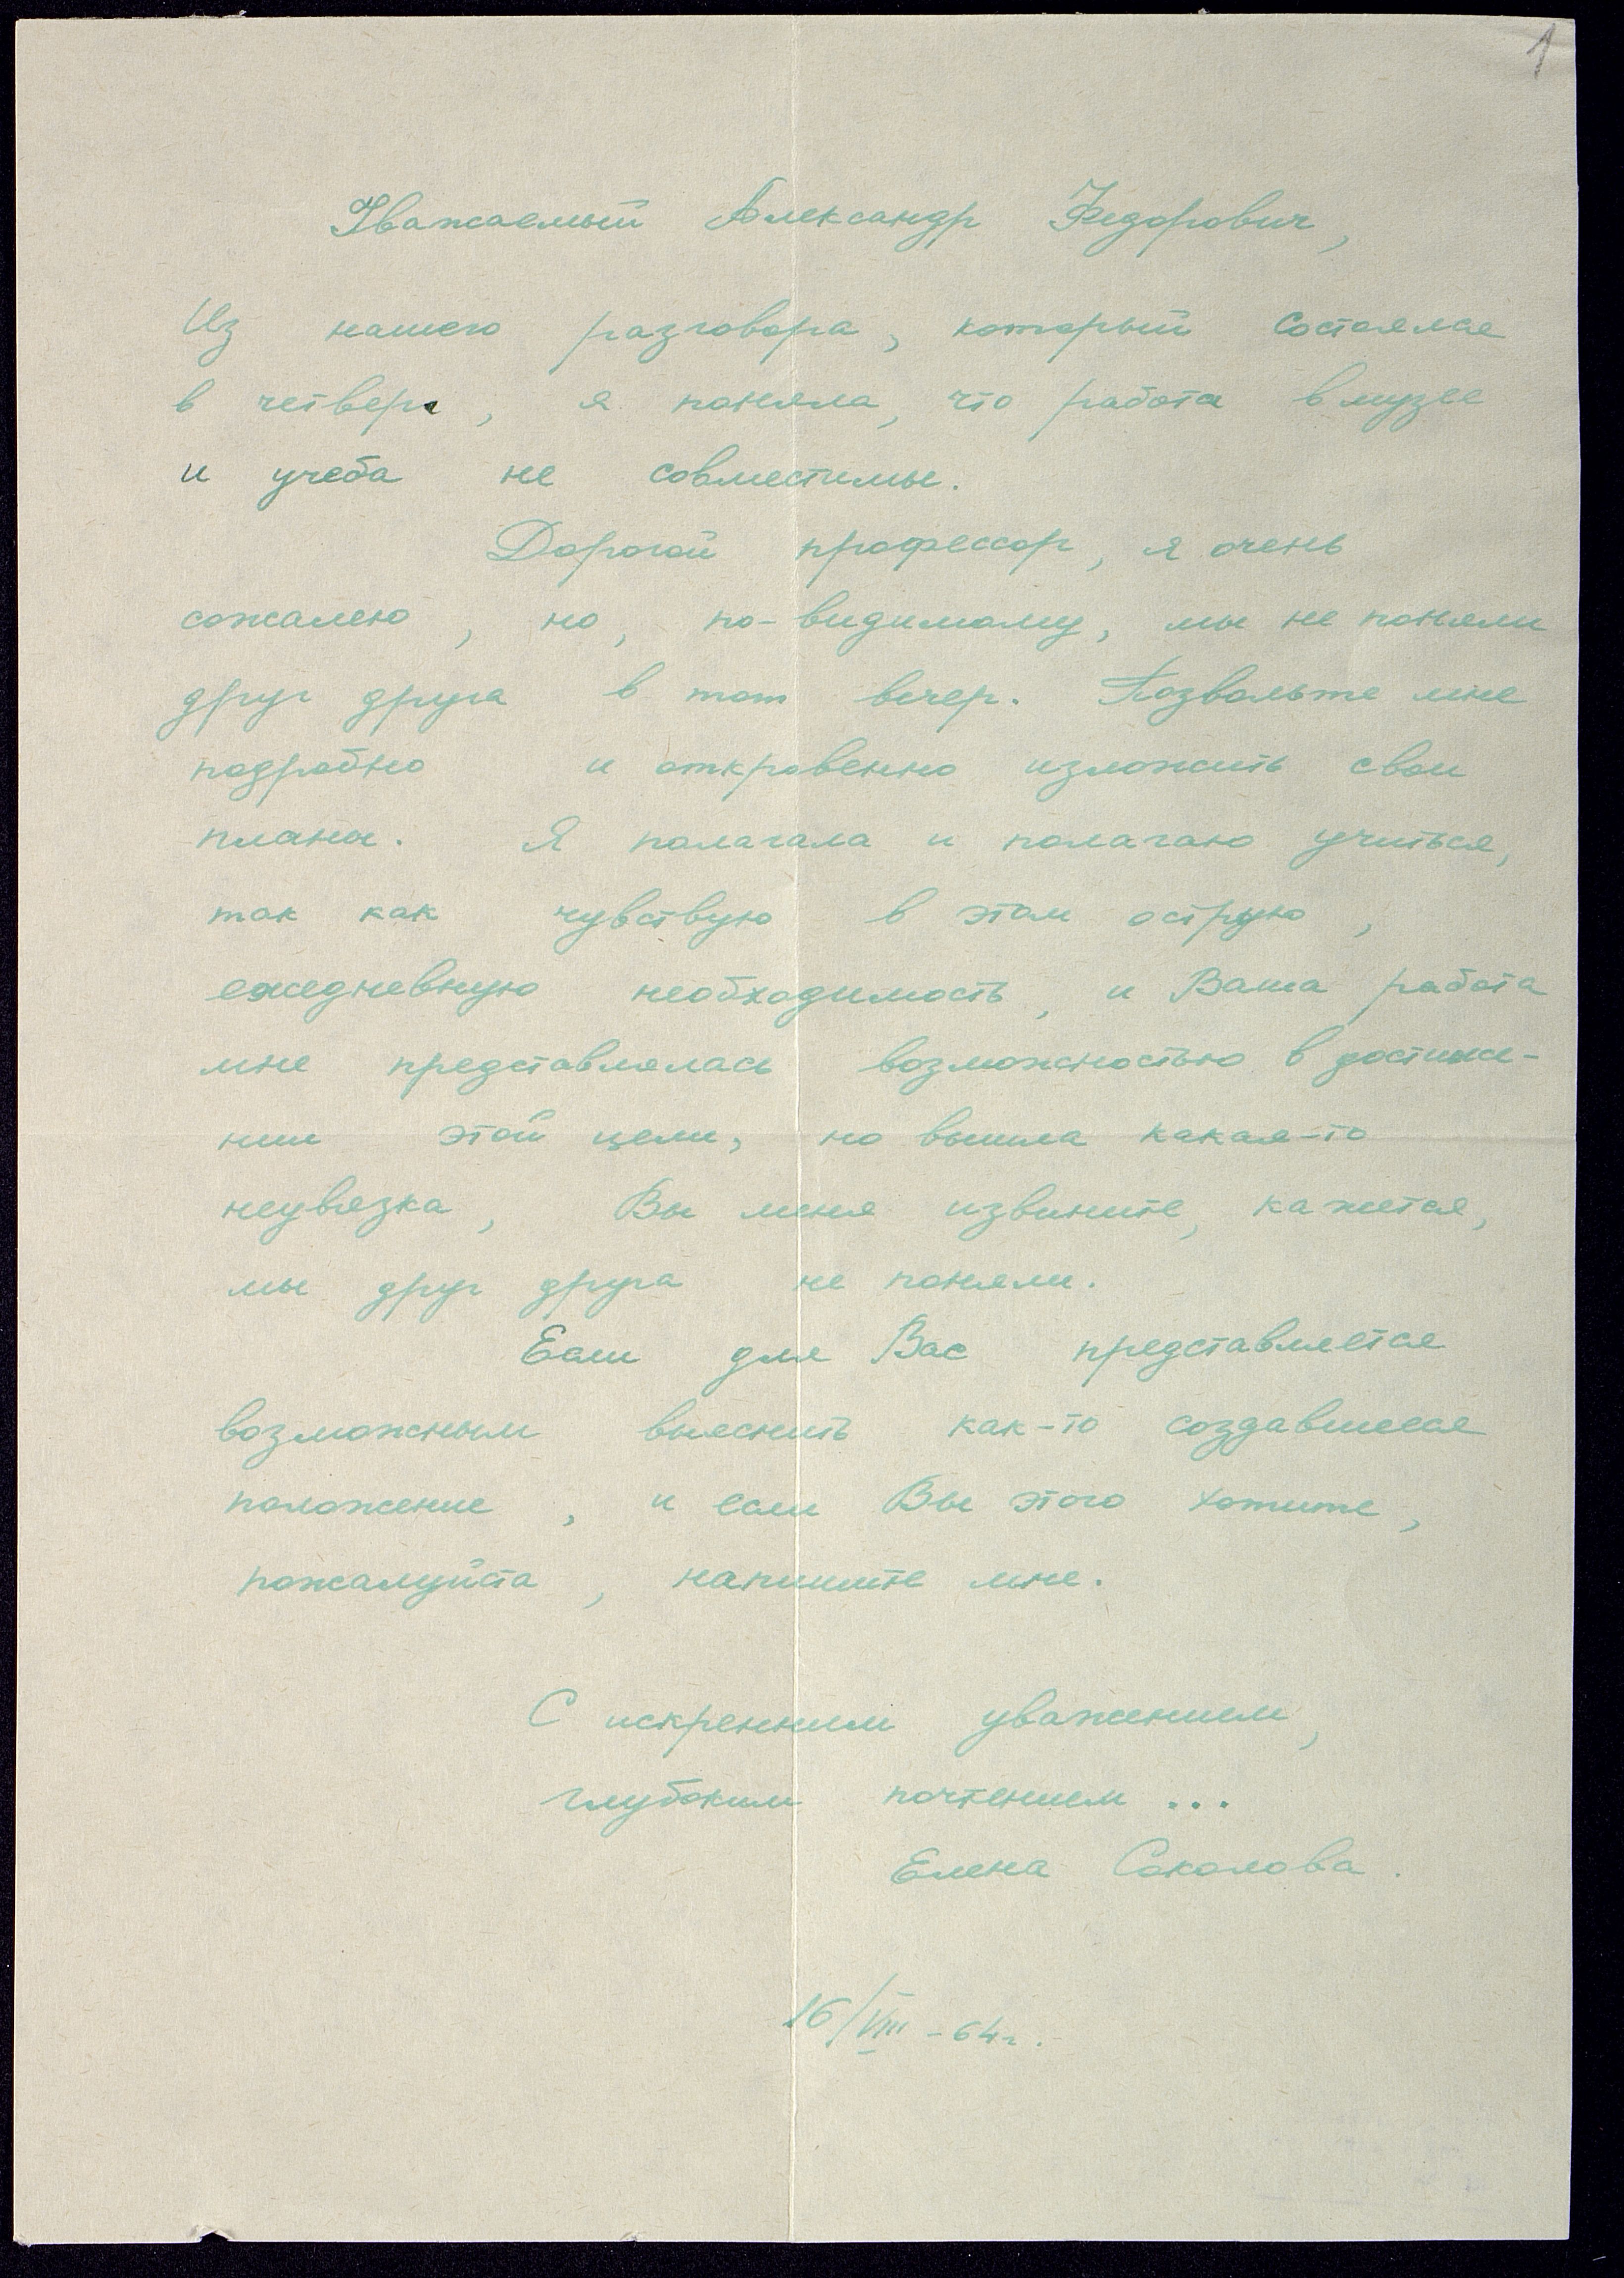 1
Уважаемый Александр Федорович,
Из нашего разговора, который состоялся
в четверг, я поняла, что работа в музее
и учеба не совместимы.
Дорогой профессор, я очень
сожалею, но, по-видимому, мы не поняли
друг друга в тот вечер. Позвольте мне
подробно и откровенно изложить свои
планы. Я полагала и полагаю учиться,
так как чувствую в этом острую,
ежедневную необходимость, и Ваша работа
мне представлялась возможностью в достиже-
нии этой цели, но вышла какая-то
неувязка, Вы меня извините, кажется,
мы друг друга не поняли.
Если для Вас представляется
возможным выяснить как-то создавшееся
положение, и если Вы этого хотите,
пожалуйста, напишите мне.
С искренним уважением,
глубоким почтением...
Елена Соколова.
16/VIII - 64г.